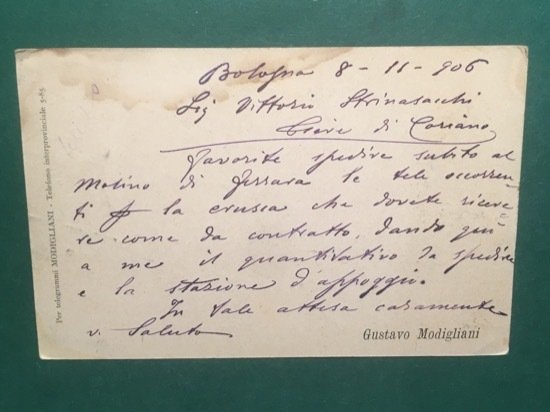 Bologna 8-11-906
Sig Vittorio Strinasacchi
Pieve di Coriano
Favorite spedire subito al
Molino di Ferrara le tele occorren
ti p la crusca che dovete riceve
re come da contratto, dando quì
a me il quantitativo da spedire
e la stazione d'appoggio.
In tale attesa caramente
v. Saluto
Gustavo Modigliani
Per telegrammi MODIGLIANI - Telefono interprovinciale 5-85